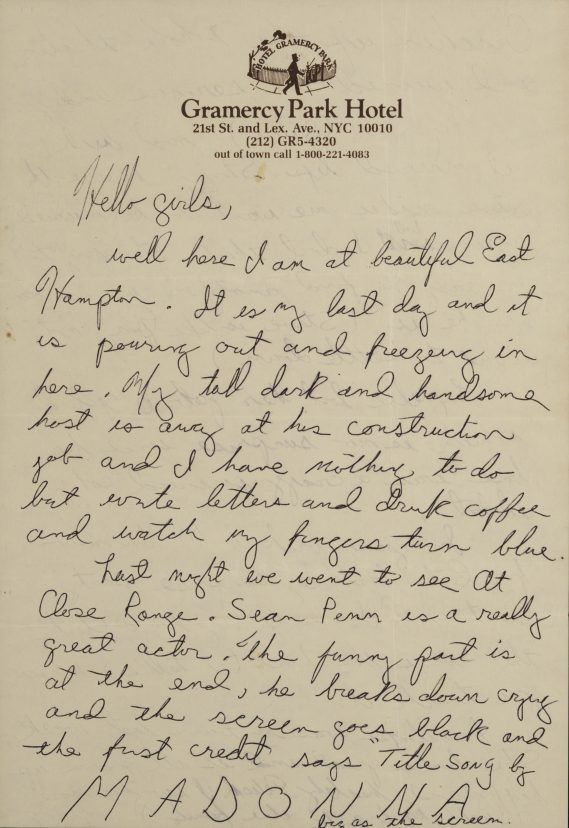 HOTEL GRAMERCY PARK
Gramercy Park Hotel
21st St. and Lex. Ave., NYC 10010
(212) GR5-4320
out of town call 1-800-221-4083
Hello girls,
well here I am at beautiful East
Hampton. It is my last day and it
is pouring out and freezing in
here. My tall dark and handsome
host is away at his construction
job and I have nothing to do
but write letters and drink coffee
and watch my fingers turn blue.
Last night we went to see At
Close Range. Sean Penn is a really
great actor. The funny part is
at the end, he breaks down crying
and the screen goes black and
the first credit says "Title Song by
MADONNA
big as the screen.